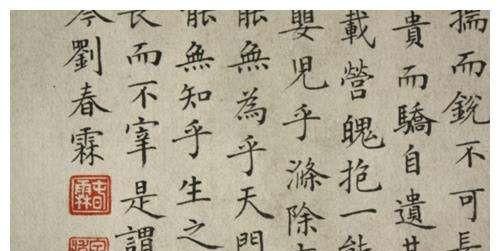 揣而銳不可長
貴而驕自遺其
載營魄抱一能
嬰兒乎滌除
能無為乎天門
能無知乎生之
長而不宰是謂
岑劉春霖
春霖